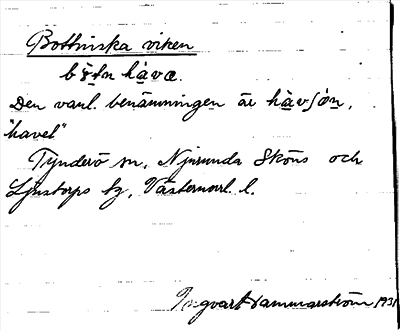 Bottniska viken
bòtn hàvæ.
Den vanl. benämningen är hàvſón,
"havet"
Tynderö sn, Njurunda Sköns och
Ljustorps tg, Västernorrl. l.
Ingvar Hammarström 1931